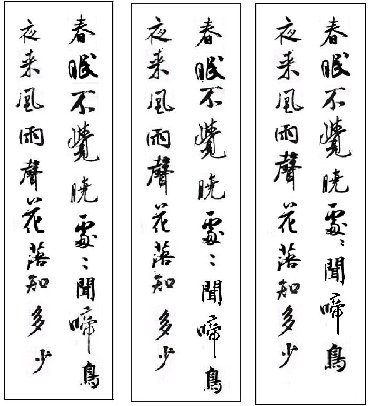 春眠不覺曉處〻聞啼鳥
夜来風雨聲花落知多少
春眠不覺曉處〻聞啼鳥
夜来風雨聲花落知多少
春眠不覺曉處〻聞啼鳥
夜来風雨聲花落知多少